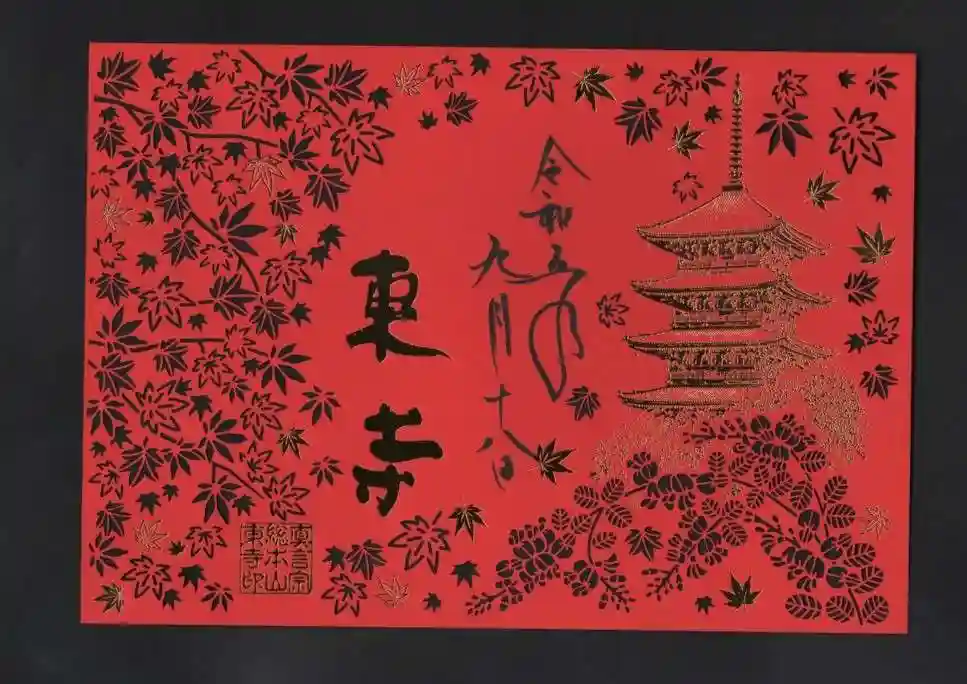 令和五年
九月十八日
東寺
真言宗
総本山
東寺印